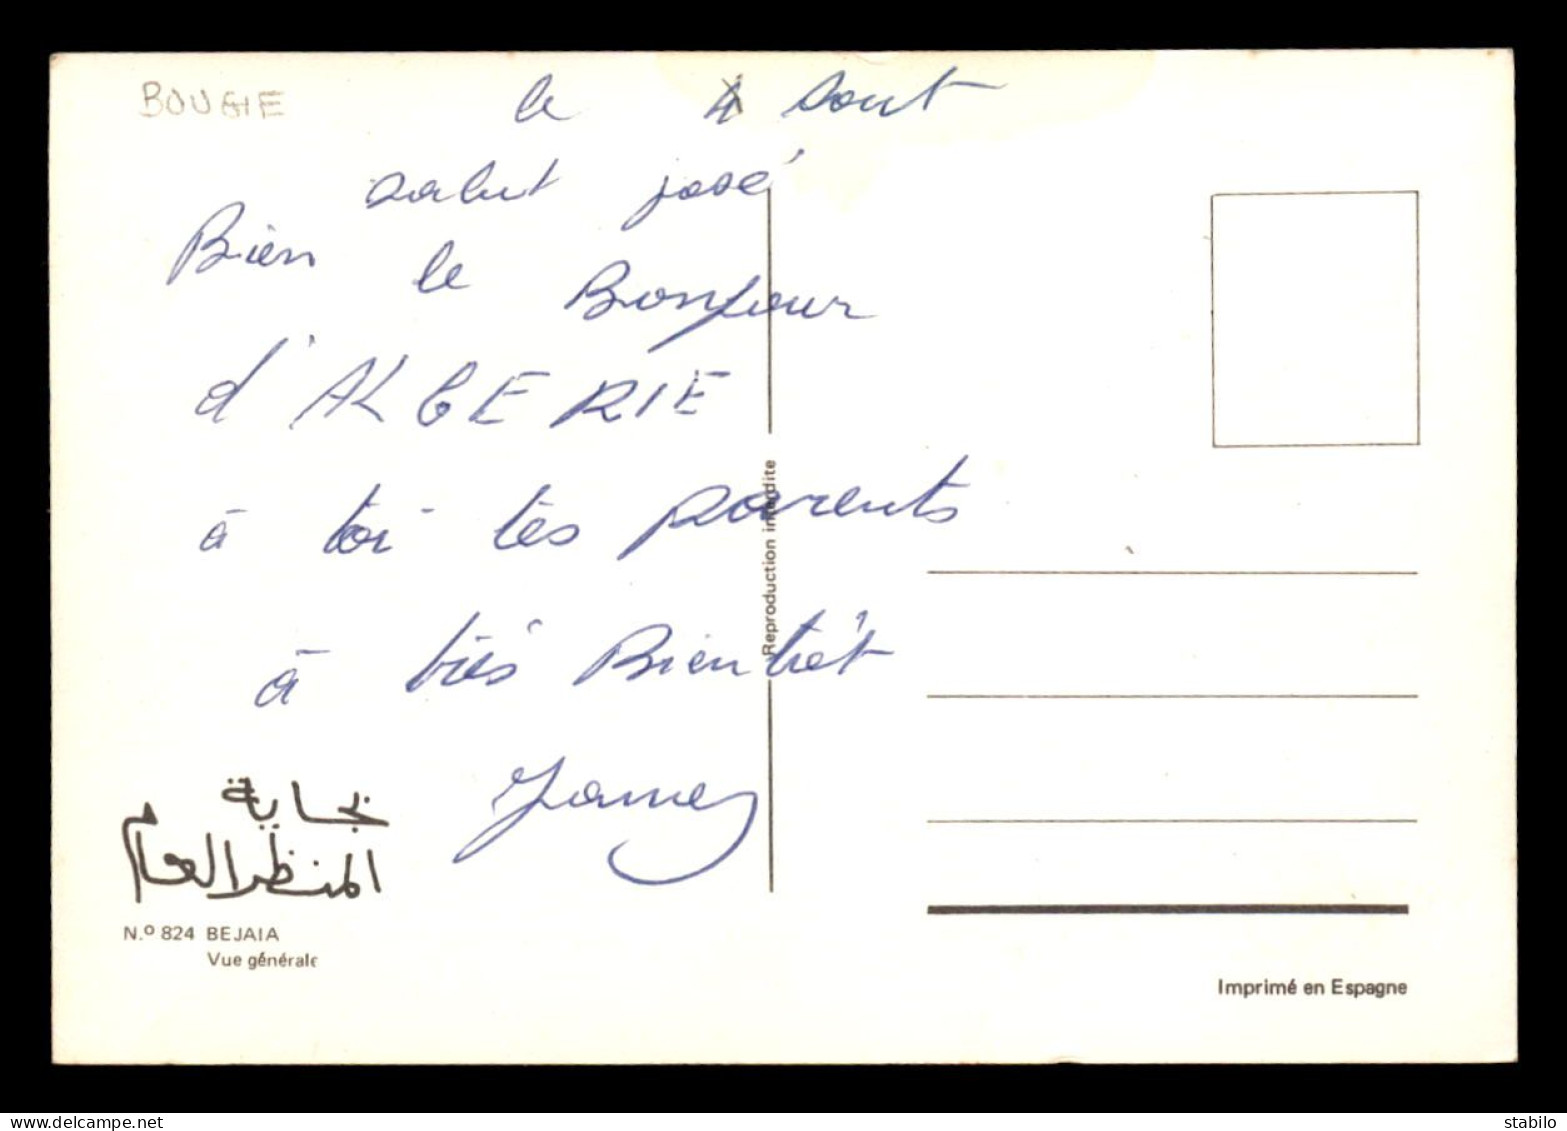 BOUGIE
le 4 aout
salut josé
Bien le Bonjour
d'ALGERIE
à toi tes parents
à très Bientôt
بجاية
المنظر العام
N.º 824 BEJAIA
Vue générale
Reproduction interdite
Imprimé en Espagne
delcampe.net
stabilo